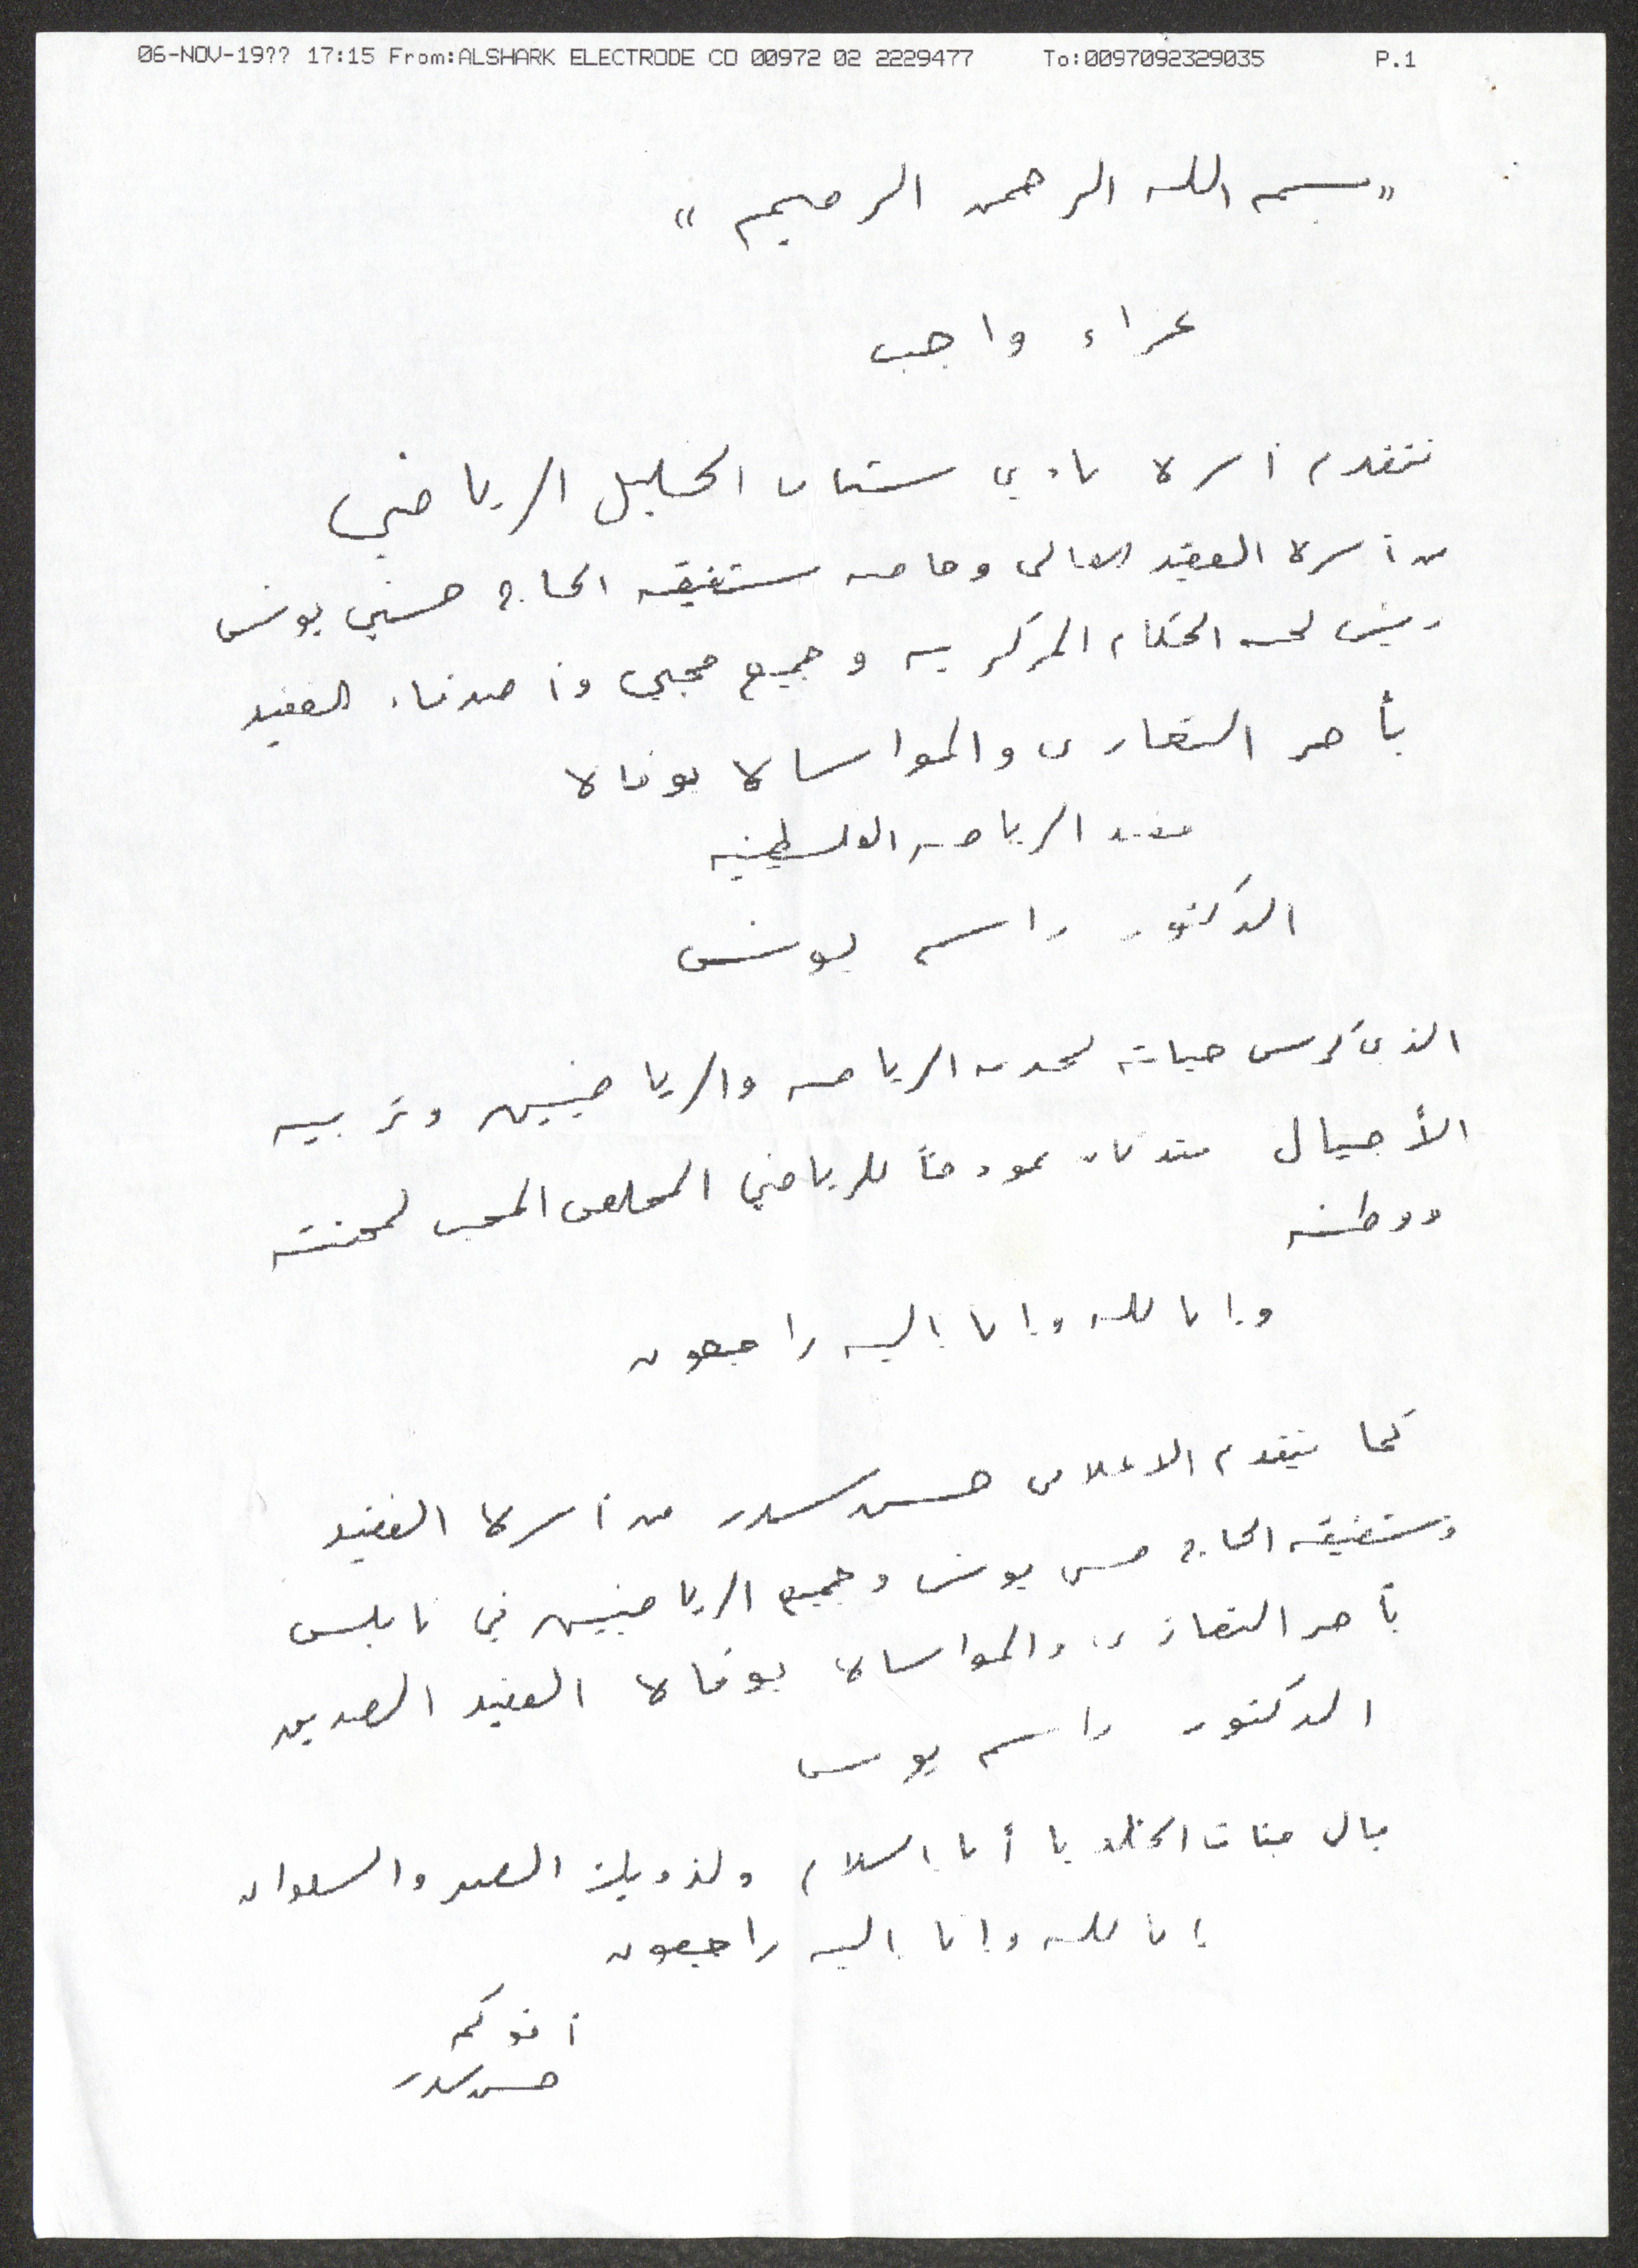 06-NOV-19?? 17:15 From:ALSHARK ELECTRODE CO 00972 02 2229477 To:0097092329035 P.1
"بسم الله الرحمن الرحيم"
عزاء واجب
تتقدم أسرة نادي شباب الخليل الرياضي
من أسرة الفقيد الغالي وخاصه شقيقه الحاج حسني يونس
رئيس لجنه الحكام المركزيه وجميع محبي وأصدقاء الفقيد
بأحر التعازي والمواساة بوفاة
فقيد الرياضه الفلسطينيه
الدكتور راسم يونس
الذي كرس حياته لخدمه الرياضه والرياضيين وتربيه
الأجيال فقد كان نموذجاً للرياضي المخلص المحب لمهنته
ووطنه
وإنا لله وإنا إليه راجعون
كما يتقدم الاعلامي حسن سدر من أسرة الفقيد
وشقيقه الحاج حسني يونس وجميع الرياضيين في نابلس
بأحر التعازي والمواساة بوفاة الفقيد الصديق
الدكتور راسم يونس
جنات الخلد يا أبا السلام ولذويك الصبر والسلوان
إنا لله وإنا إليه راجعون
أخوكم
حسن سدر